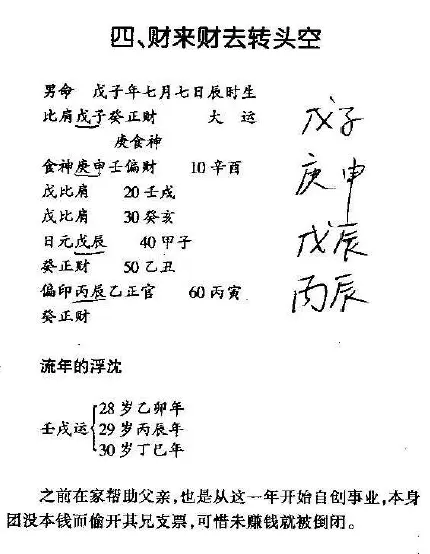 四、财来财去转头空
男命 戊子年七月七日辰时生
比肩戊子癸正财 大 运
庚食神
食神庚申壬偏财 10辛酉
戊比肩 20壬戌
戊比肩 30癸亥
日元戊辰 40甲子
癸正财 50乙丑
偏印丙辰乙正官 60丙寅
癸正财
戊子
庚申
戊辰
丙辰
流年的浮沈
28岁乙卯年
壬戌运 29岁丙辰年
30岁丁巳年
之前在家帮助父亲,也是从这一年开始自创事业,本身
团没本钱而偷开其兄支票,可惜未赚钱就被倒闭。